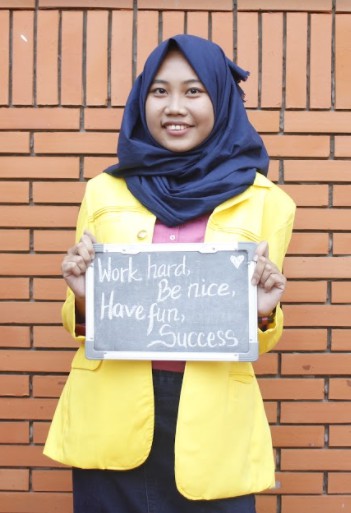 Work hard,
Be nice,
Have fun,
Success